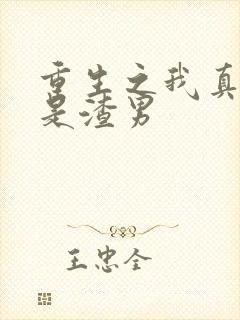 重生之我真
是渣男
王忠全